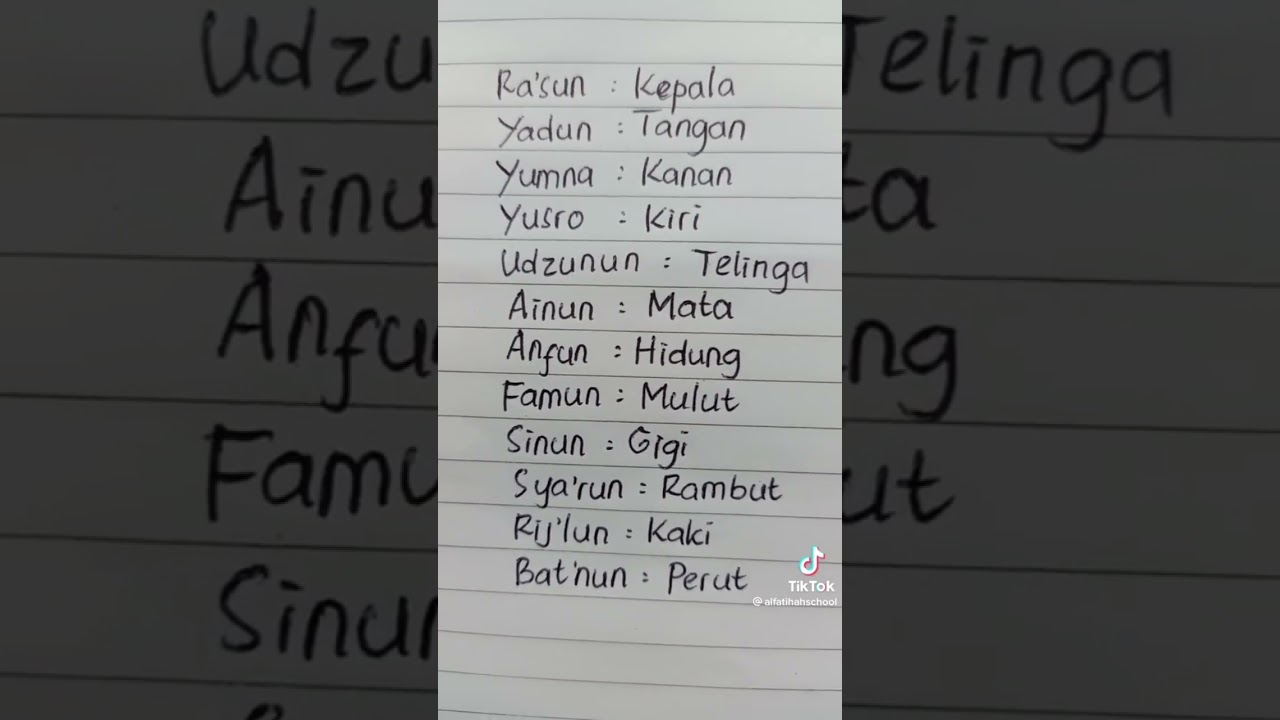 Ra'sun : Kepala
Yadun : Tangan
Yumna : Kanan
Yusro : Kiri
Udzunun : Telinga
Ainun : Mata
Anfun : Hidung
Famun : Mulut
Sinun : Gigi
Sya'run : Rambut
Rij'lun : Kaki
Bat'nun : Perut
TikTok
@alfatihahschool